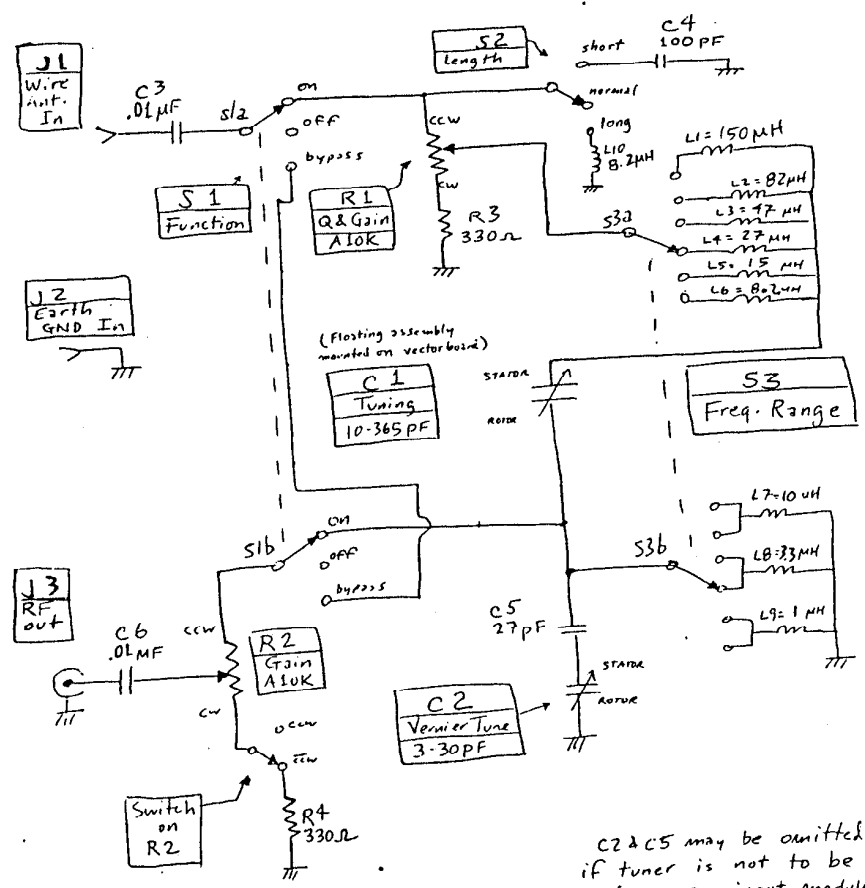 J1
Wire
ant.
In
C3
.01 µF
S1a
on
off
bypass
S2
Length
short
normal
long
C4
100 PF
L10
8.2µH
S1
Function
R1
Q & Gain
A10K
CCW
CW
R3
330Ω
S3a
L1 = 150 µH
L2 = 82µH
L3 = 47 µH
L4 = 27 µH
L5 = 15 µH
L6 = 8.2µH
J2
Earth
GND In
(Floating assembly
mounted on vectorboard)
C1
Tuning
10-365 pF
STATOR
ROTOR
S3
Freq. Range
S1b
on
off
bypass
S3b
L7=10 uH
L8=3.3 µH
L9=1 µH
J3
RF
out
C6
.01 MF
CCW
CW
R2
Gain
A10K
C5
27 pF
C2
Vernier Tune
3-30 pF
STATOR
ROTOR
CCW
C̅C̅W̅
Switch
on
R2
R4
330Ω
C2 & C5 may be omitted
if tuner is not to be